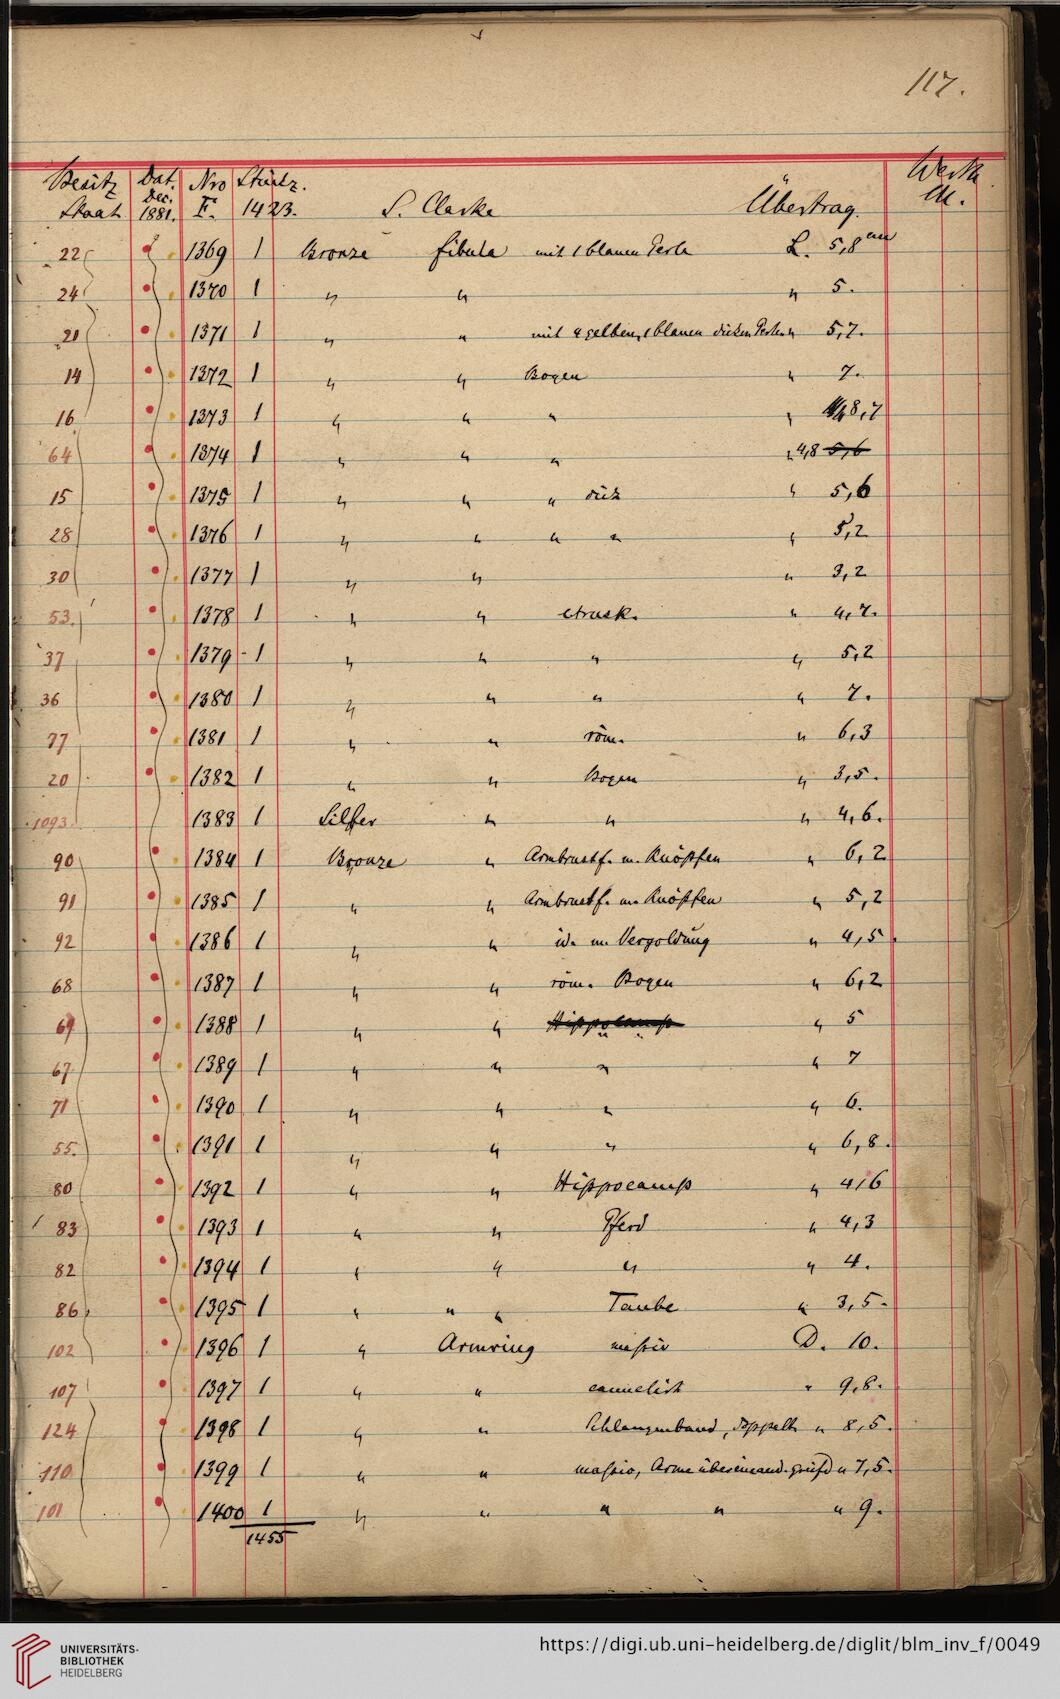 117.
Besitz Dat. Nro Stückz. Werth
Staat Dec. 1881. F. 1423. S. Clarke Übertrag. M.
22 1369 1 Bronze fibula mit 1 blauen Perle L. 5,8 cm
24 1370 1 " " " 5.
21 1371 1 " " mit 4 gelben, 1 blauen dicken Perlen " 5,7.
14 1372 1 " " Bogen " 7.
16 1373 1 " " " " 8,7
64 1374 1 " " " " 4,8 5,6
15 1375 1 " " " dick " 5,6
28 1376 1 " " " " " 5,2
30 1377 1 " " " 3,2
53. 1378 1 " " etrusk. " 4,7.
37 1379 1 " " " " 5,2
36 1380 1 " " " " 7.
77 1381 1 " " röm. " 6,3
20 1382 1 " " Bogen " 3,5.
1093. 1383 1 Silber " " " 4,6.
90 1384 1 Bronze " Armbrustf. m. Knöpfen " 6,2
91 1385 1 " " Armbrustf. m. Knöpfen " 5,2
92 1386 1 " " id. m. Vergoldung " 4,5.
68 1387 1 " " röm. Bogen " 6,2
69 1388 1 " " Hippocamp " " " 5
67 1389 1 " " " " 7
71 1390 1 " " " " 6.
55. 1391 1 " " " " 6,8.
80 1392 1 " " Hippocamp " 4,6
83 1393 1 " " Pferd " 4,3
82 1394 1 " " " " 4.
86 1395 1 " " " Taube " 3,5.
102 1396 1 " Armring massiv D. 10.
107 1397 1 " " cannelirt " 9,8.
124 1398 1 " " Schlangenband, doppelt " 8,5.
110 1399 1 " " massiv, Arme übereinand. " 7,5.
101 1400 1 " " " " " 9.
1455
UNIVERSITÄTS-
BIBLIOTHEK
HEIDELBERG
https://digi.ub.uni-heidelberg.de/diglit/blm_inv_f/0049